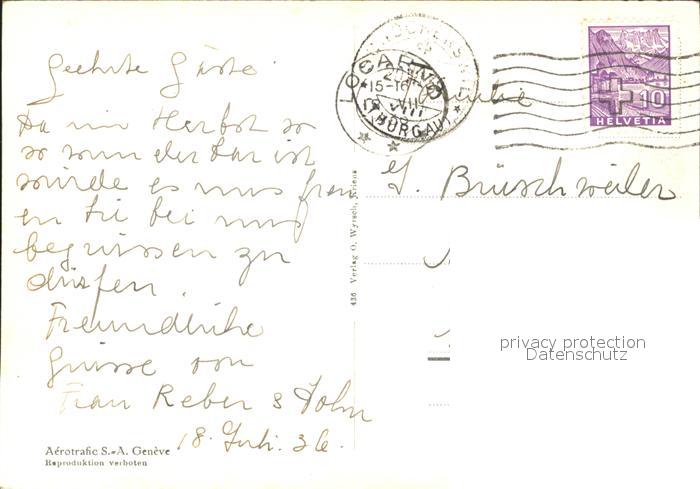 Geehrte Gäste!
Da im Herbst so
so wunderbar ist
würde es uns freu
en Sie bei uns
begrüssen zu
dürfen.
Freundliche
Grüsse von
Frau Reber & Sohn
18. Juli. 36.
Aérotrafic S.-A. Genève
Reproduktion verboten
436 Verlag O. Wyrsch, Kriens
LOCARNO
(THURGAU)
15-16
VII
10
HELVETIA
G. Brüschweiler
privacy protection
Datenschutz